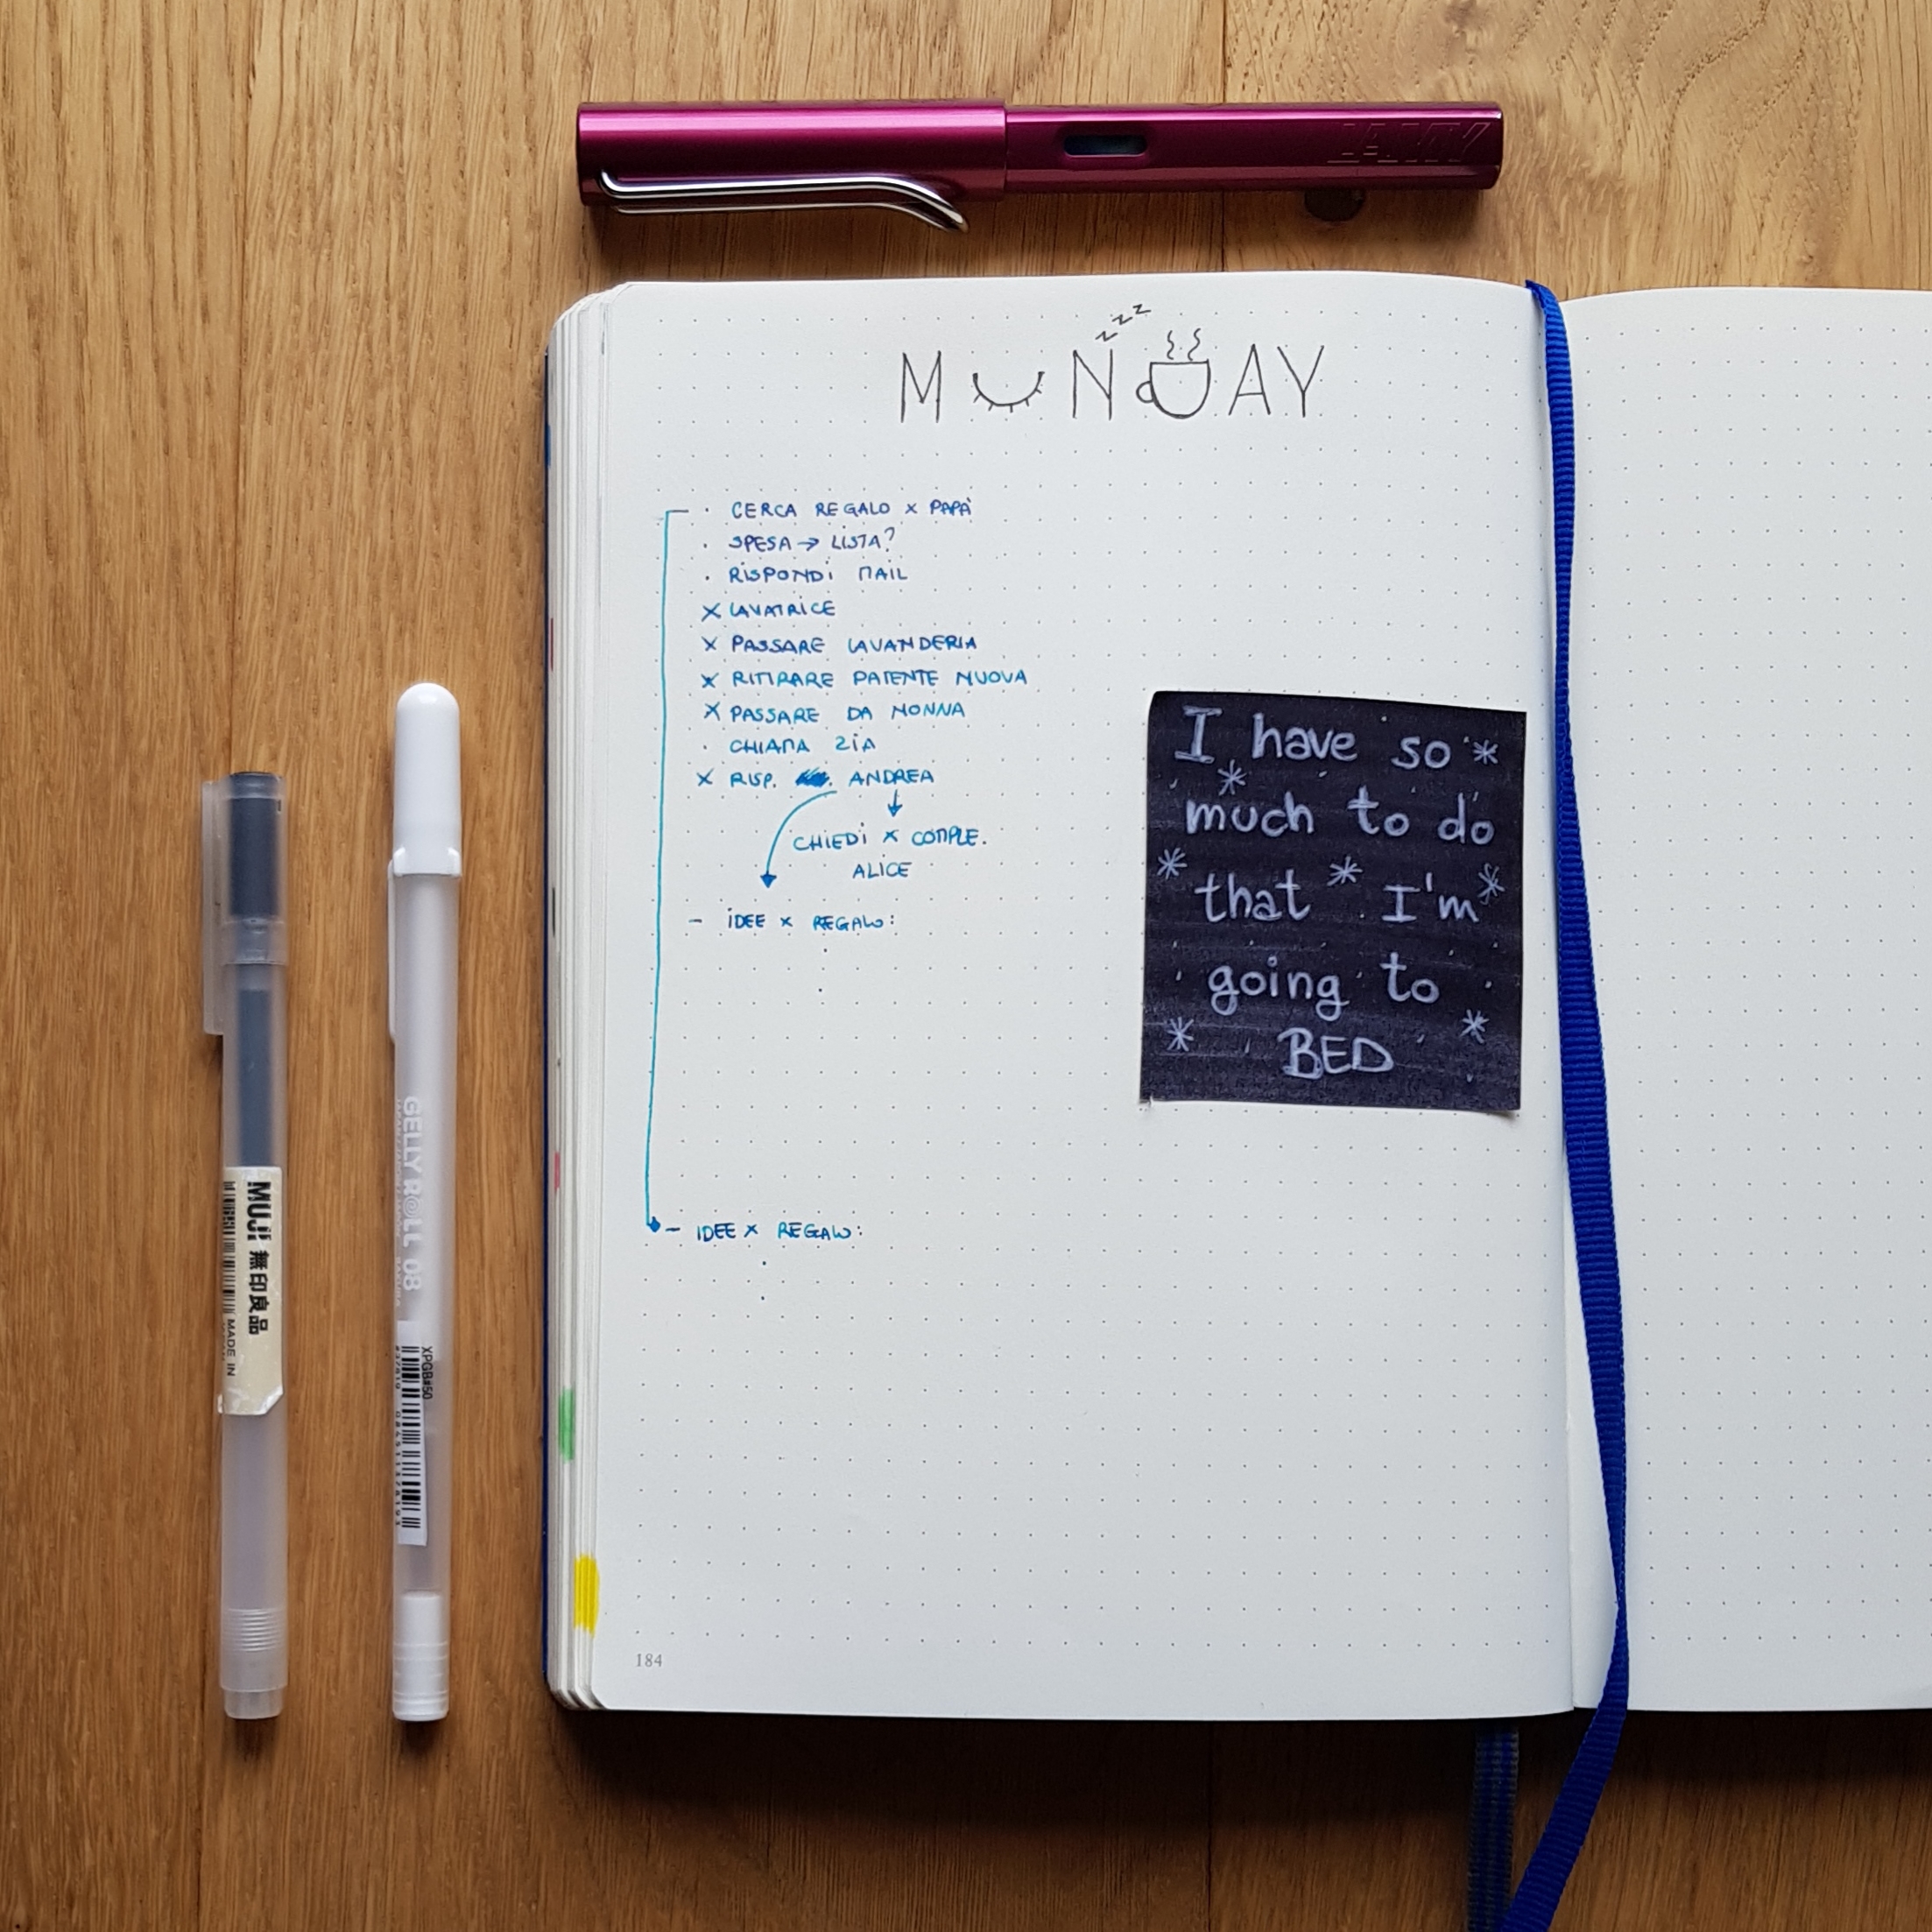 LAMY
zzz
MONDAY
· CERCA REGALO x PAPÀ
· SPESA → LISTA?
· RISPONDI MAIL
x LAVATRICE
x PASSARE LAVANDERIA
x RITIRARE PATENTE NUOVA
x PASSARE DA NONNA
· CHIAMA ZIA
x RISP. ANDREA
CHIEDI x COMPLE.
ALICE
- IDEE x REGALO:
- IDEE x REGALO:
I have so
much to do
that I'm
going to
BED
184
MUJI 無印良品
MADE IN
GELLY R@LL 08
XPGB#50